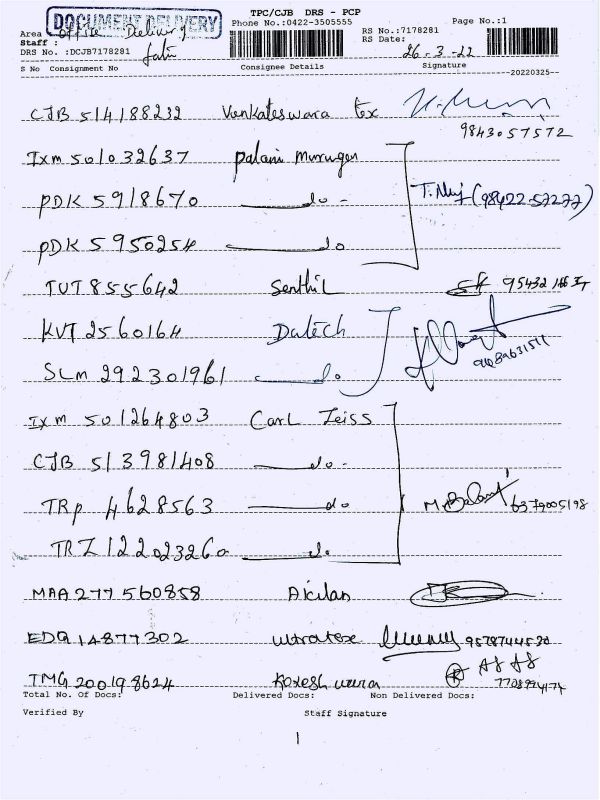 DOCUMENT DELIVERY
TPC/CJB DRS - PCP
Phone No.:0422-3505555
Page No.:1
Area Office Delivery
RS No.:7178281
Staff :
RS Date: 26-3-22
DRS No. :DCJB7178281
S No Consignment No Consignee Details Signature
20220325
CJB 514188232 Venkateswara tex
9843057572
IXM 501032637 palani murugan
PDK 5918670 do - (98422-57277)
PDK 5950254 do
TUT 855642 Senthil
KVT 2560164 Datech
SLM 292301961 do
IXM 501264803 Carl Zeiss
CJB 513981408 do -
TRP 4628563 do 6379005198
TRZ 122023260 do
MAA 277560858 Akilan
EDQ 14877302 ultratex 9578744530
TMG 200198624
Total No. Of Docs: Delivered Docs: Non Delivered Docs:
Verified By Staff Signature
1